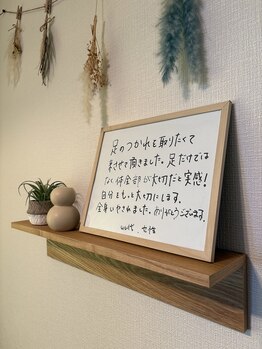 足のつかれを取りたくて
来させて頂きました。足だけでは
なく体全部が大切だと実感!
自分をもっと大切にします。
全身いやされました。ありがとうございます。
代 女性